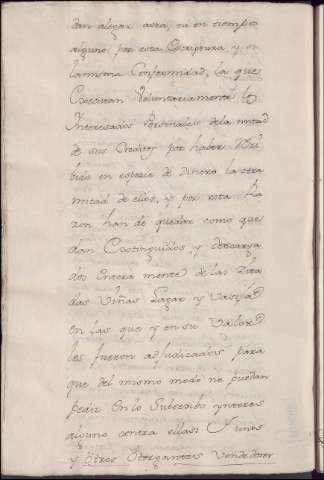 dan alegar aora, ni en tiempo
alguno por esta Escriptura, y en
la misma Conformidad, la que
Executan Voluntariamente los
Interesados Personales de la mitad
de sus Creditos por haber Reci
bido en especie de dinero la otra
mitad de ellos, y por esta Ra
zon han de quedar como que
dan Extinguidos y descarga
dos Entera mente de las Zita
das Viñas Lagar y Vasijas
en las que y en su Valor
les fueron adjudicados para
que del mismo modo no puedan
pedir En lo Subcesibo ynteres
alguno contra ellas; Y unos
y otros Otorgantes Vendedores